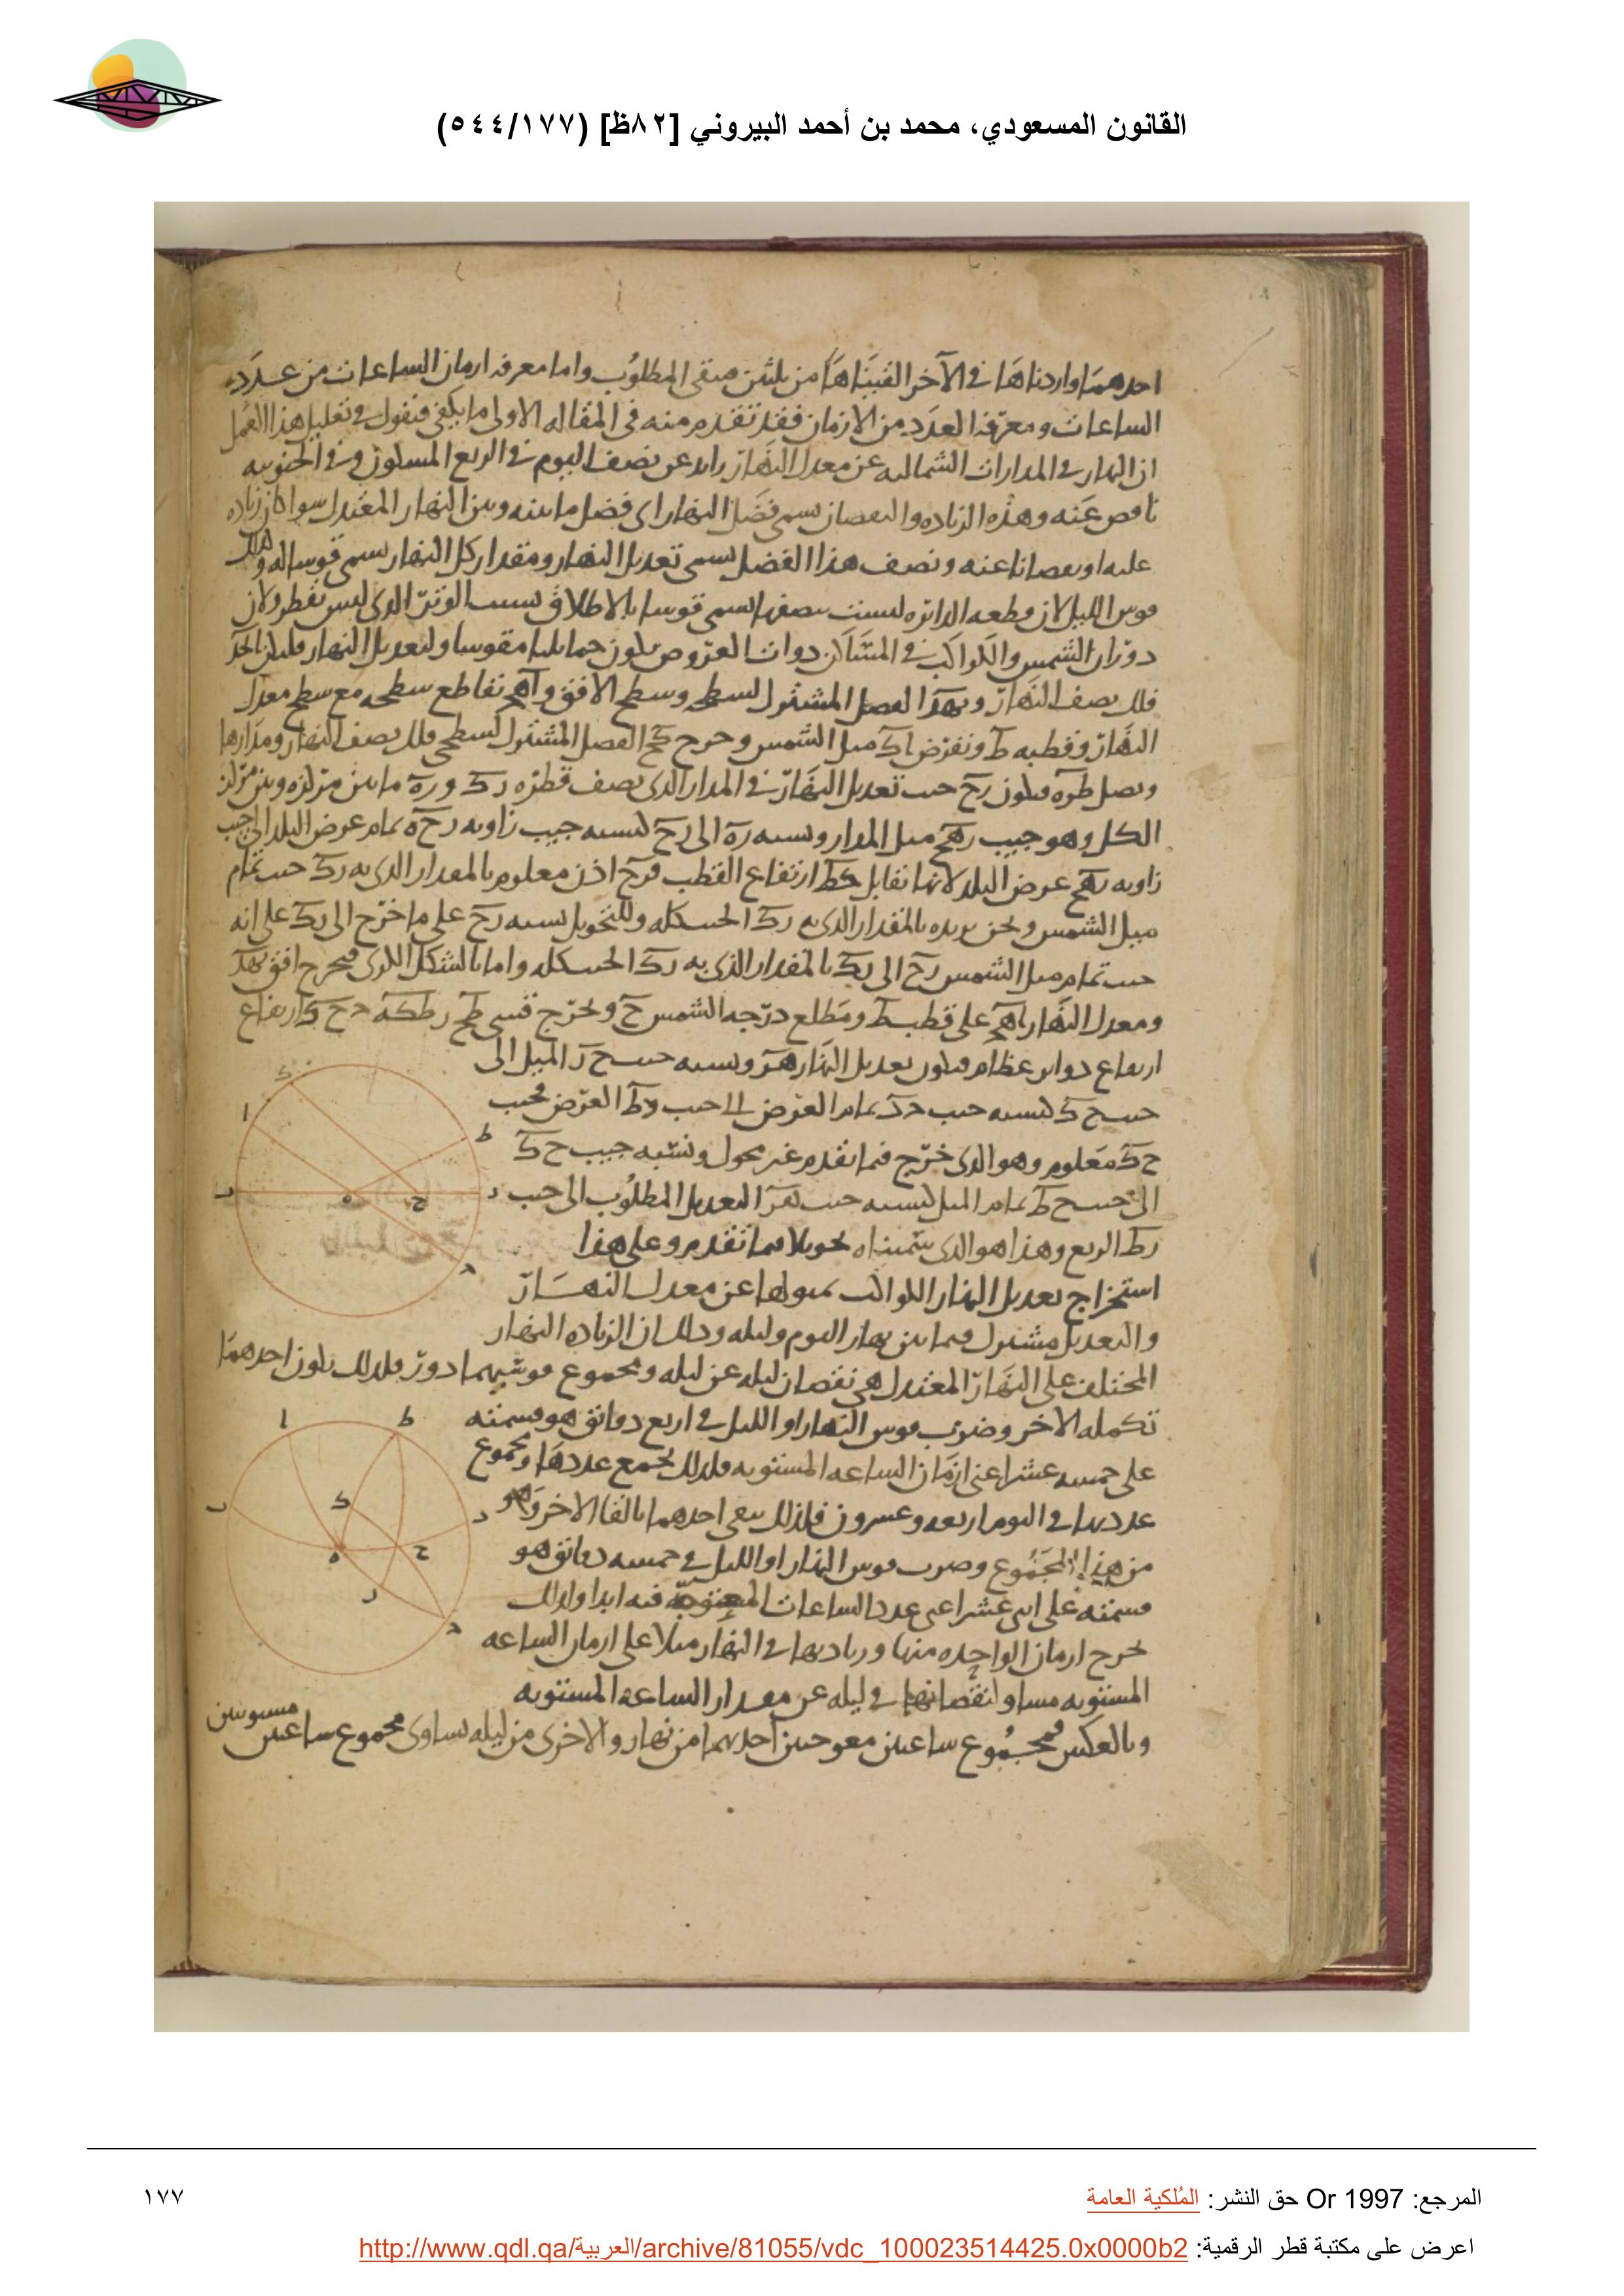 القانون المسعودي، محمد بن أحمد البيروني [٨٢ظ] (٥٤٤/١٧٧)
احدهما واردناها في الآخر القيناها من ثلثين فيبقى المطلوب واما معرفه ازمان الساعات من عدد
الساعات ومعرفة العدد من الازمان فقد تقدم منه في المقاله الاولى ما يكفى فنقول في تعليل هذا العمل
ان النهار في المدارات الشماليه عن معدل النهار زايد عن نصف اليوم في الربع المسكون وفي الجنوبيه
ناقص عنه وهذه الزياده والنقصان يسمى فضل النهار اى فضل ما بينه وبين النهار المعتدل سواء كان زياده
عليه او نقصانا عنه ونصف هذا الفضل يسمى تعديل النهار ومقدار كل النهار يسمى قوسا له وكذلك
قوس الليل لان قطعه الدائره ليست بنصفها تسمى قوسا بالاطلاق بسبب الوتر الذى ليس بقطر ولان
دوران الشمس والكواكب في المساكن ذوات العروض يكون حمايليا مقوسا ولتعديل النهار فليكن ابجد
فلك نصف النهار و بهد الفصل المشترك لسطحه وسطح الافق و اهج تقاطع سطحه مع سطح معدل
النهار وقطبه ط ونفرض اك ميل الشمس ونخرج كح الفصل المشترك لسطحى فلك نصف النهار ومدارها
ونصل طره فيكون رح جيب تعديل النهار في المدار الذى نصف قطره رك و ره ما بين مركزه وبين مركز
الكل وهو جيب رهح ميل المدار ونسبه ره الى رح كنسبه جيب زاويه رحه تمام عرض البلد الى جيب
زاويه رهح عرض البلد لانها تقابل دط ارتفاع القطب فرح اذن معلوم بالمقدار الذى به رك جيب تمام
ميل الشمس ونحن نريده بالمقدار الذى به رك الجيب كله وللتحويل نسبه رح على ما خرج الى رك على انه
جيب تمام ميل الشمس رح الى رك بالمقدار الذى به رك الجيب كله واما بالشكل الكرى فنخرج افق بهد
ومعدل النهار اهج على قطب ط ومطلع درجه الشمس ح ونخرج قسى طح رطك ه ح ك ارتفاع
ارباع دواير عظام فيكون تعديل النهار هر ونسبه جيب ح ر الميل الى
جيب ح ك كنسبه جيب دج تمام العرض الى جيب دط العرض فجيب
ح ك معلوم وهو الذى خرج فيما تقدم غير محول ونسبه جيب ح ك
الى جيب ح ط تمام الميل كنسبه جيب هر التعديل المطلوب الى جيب
رط الربع وهذا هو الذى سميناه تحويلا فيما تقدم وعلى هذا
استخراج تعديل النهار للكواكب بميولها عن معدل النهار
والتعديل مشترك فيما بين نهار اليوم وليله وذلك ان الزياده النهار
المختلف على النهار المعتدل هى نقصان ليله عن ليله ومجموع قوسيهما دور فلذلك يكون احدهما
تكمله الاخر وضرب قوس النهار او الليل في اربع دقائق هو قسمته
على خمسه عشر اعنى ازمان الساعه المستويه فلذلك يجمع عددها ومجموع
عدديهما في اليوم اربعه وعشرون فلذلك يبقى احدهما بالقا الاخر وهو
من هذا المجموع وضرب قوس النهار او الليل في خمسه دقائق هو
قسمته على اثنى عشر اعنى عدد الساعات المعوجة فيه ابدا ولذلك
يخرج ازمان الواحده منها وزيادتها في النهار مثلا على ازمان الساعه
المستويه مساو لنقصانها في ليله عن مقدار الساعه المستويه
وبالعكس فمجموع ساعتين معوجتين احديهما من نهار والاخرى من ليله يساوى مجموع ساعتين مستويتين
المرجع: Or 1997 حق النشر: المُلكية العامة
١٧٧
اعرض على مكتبة قطر الرقمية: http://www.qdl.qa/العربية/archive/81055/vdc_100023514425.0x0000b2